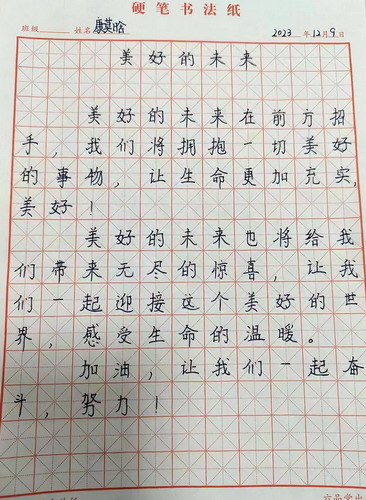 硬笔书法纸
班级 姓名 康莫晗 2023年12月9日
美好的未来
美好的未来在前方招
手，我们将拥抱一切美好
的事物，让生命更加充实，
美好！
美好的未来也将给我
们带来无尽的惊喜，让我
们一起迎接这个美好的世
界，感受生命的温暖。
加油，让我们一起奋
斗，努力！